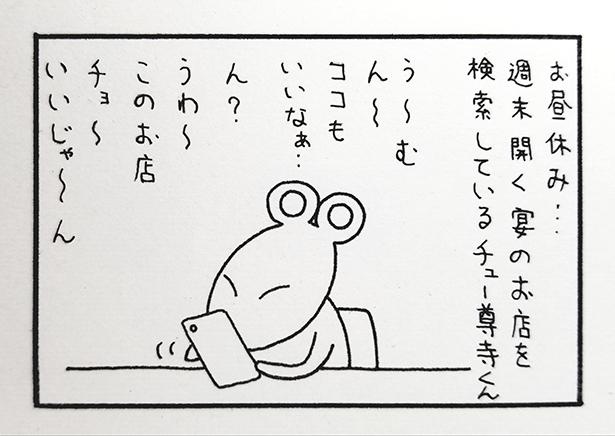 お昼休み…
週末開く宴のお店を
検索しているチュー尊寺くん
う〜む
ん〜
ココも
いいなぁ…
ん?
うわ〜
このお店
チョ〜
いいじゃ〜ん